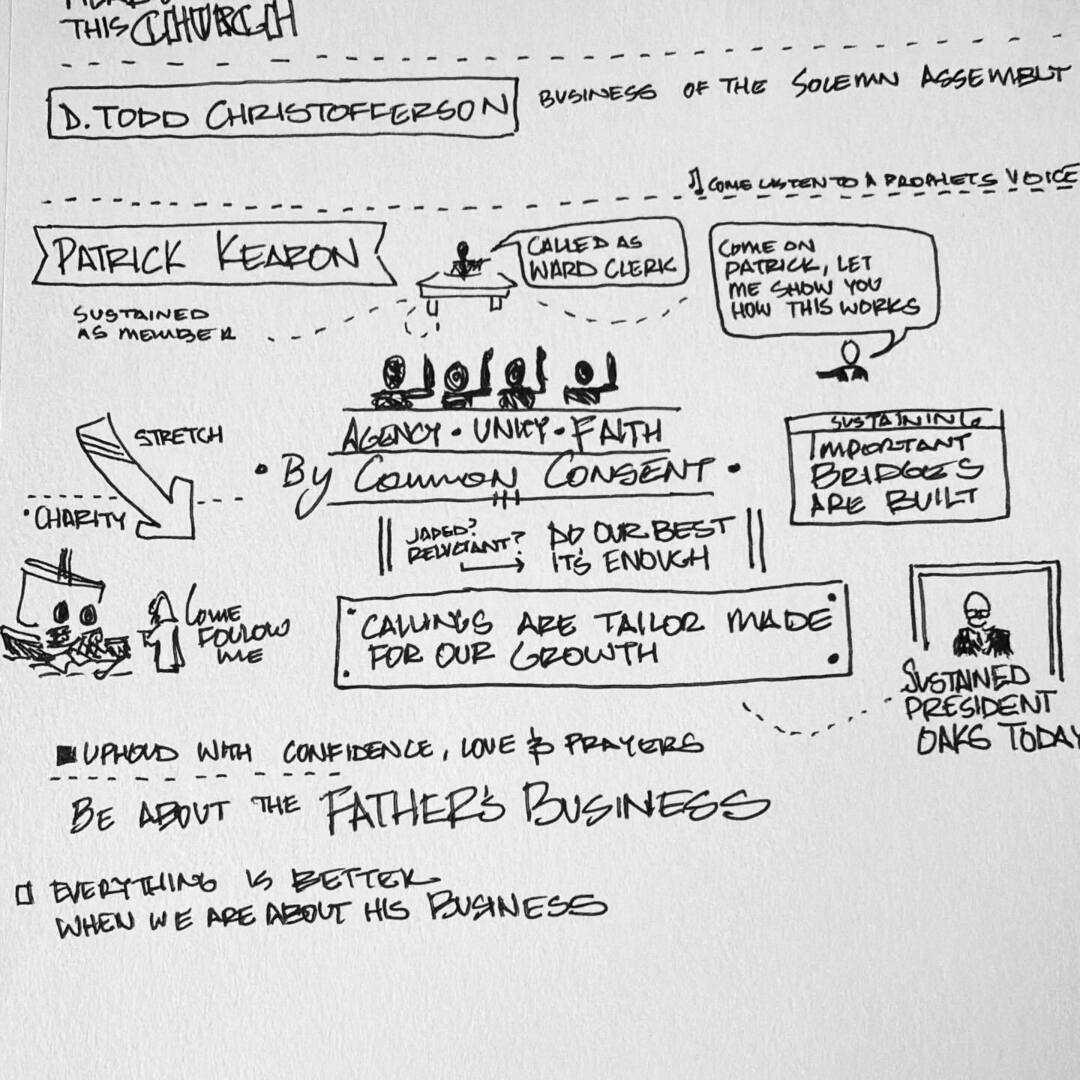 THIS CHURCH
D. TODD CHRISTOFFERSON
BUSINESS OF THE SOLEMN ASSEMBLY
COME LISTEN TO A PROPHET'S VOICE
PATRICK KEARON
CALLED AS
WARD CLERK
COME ON
PATRICK, LET
ME SHOW YOU
HOW THIS WORKS
SUSTAINED
AS MEMBER
AGENCY · UNITY · FAITH
• BY COMMON CONSENT •
STRETCH
• CHARITY
SUSTAINING
IMPORTANT
BRIDGES
ARE BUILT
JADED?
RELUCTANT?
DO OUR BEST
IT'S ENOUGH
COME
FOLLOW
ME
CALLINGS ARE TAILOR MADE
FOR OUR GROWTH
SUSTAINED
PRESIDENT
OAKS TODAY
UPHOLD WITH CONFIDENCE, LOVE & PRAYERS
BE ABOUT THE FATHER'S BUSINESS
EVERYTHING IS BETTER
WHEN WE ARE ABOUT HIS BUSINESS